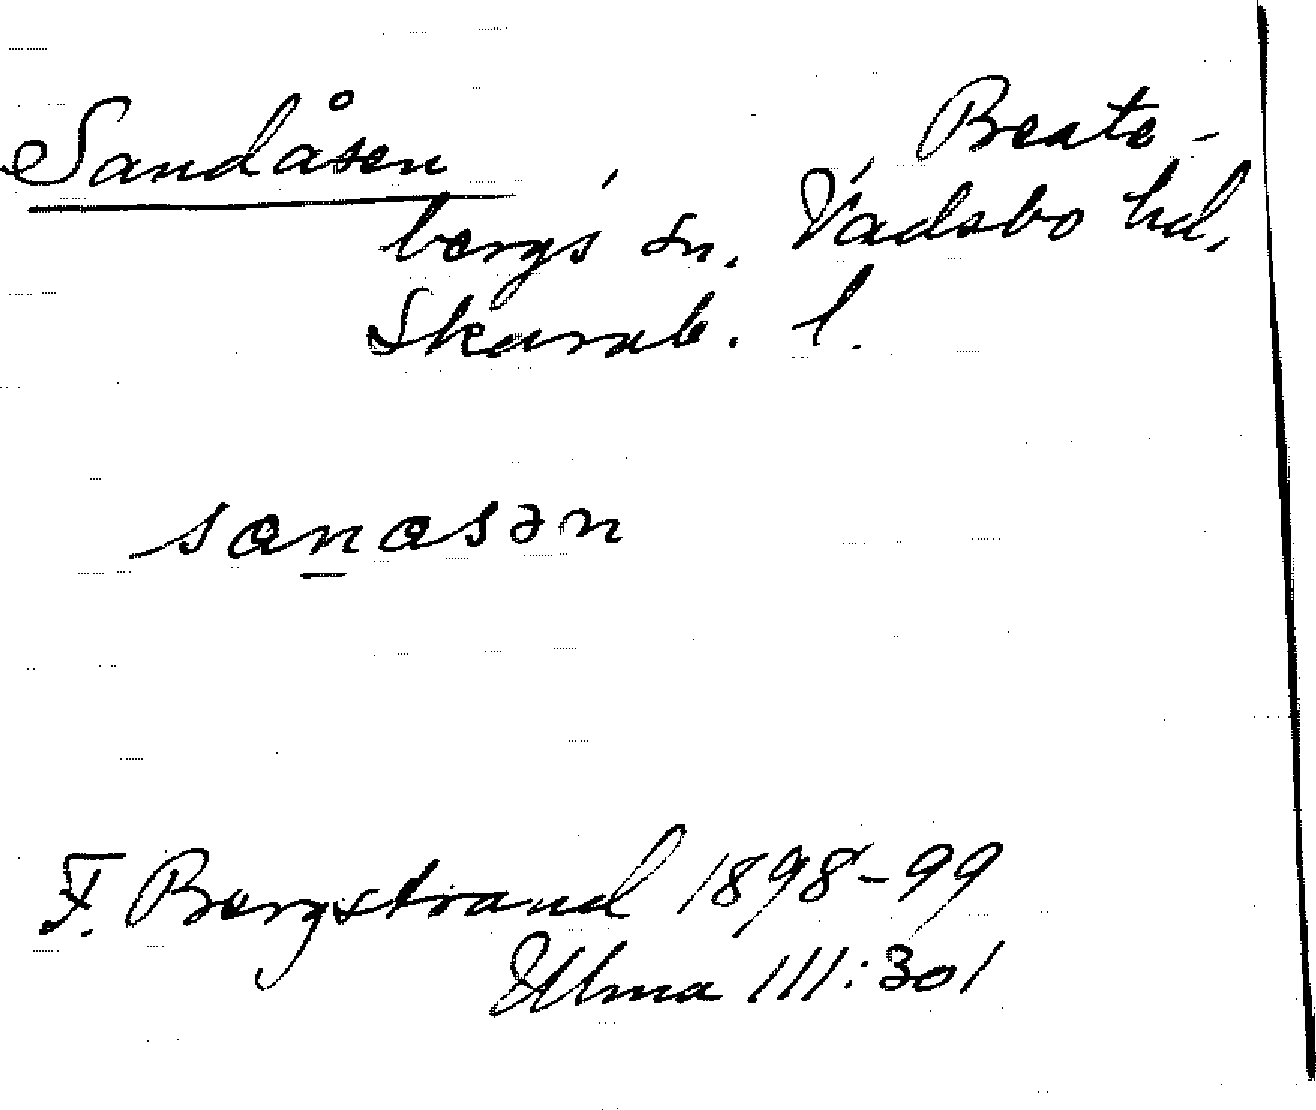 Sandåsen, Beate-
bergs sn. Vadsbo hd,
Skarab. l.
sanasən
F. Bergstrand 1898-99
Ulma 111:301